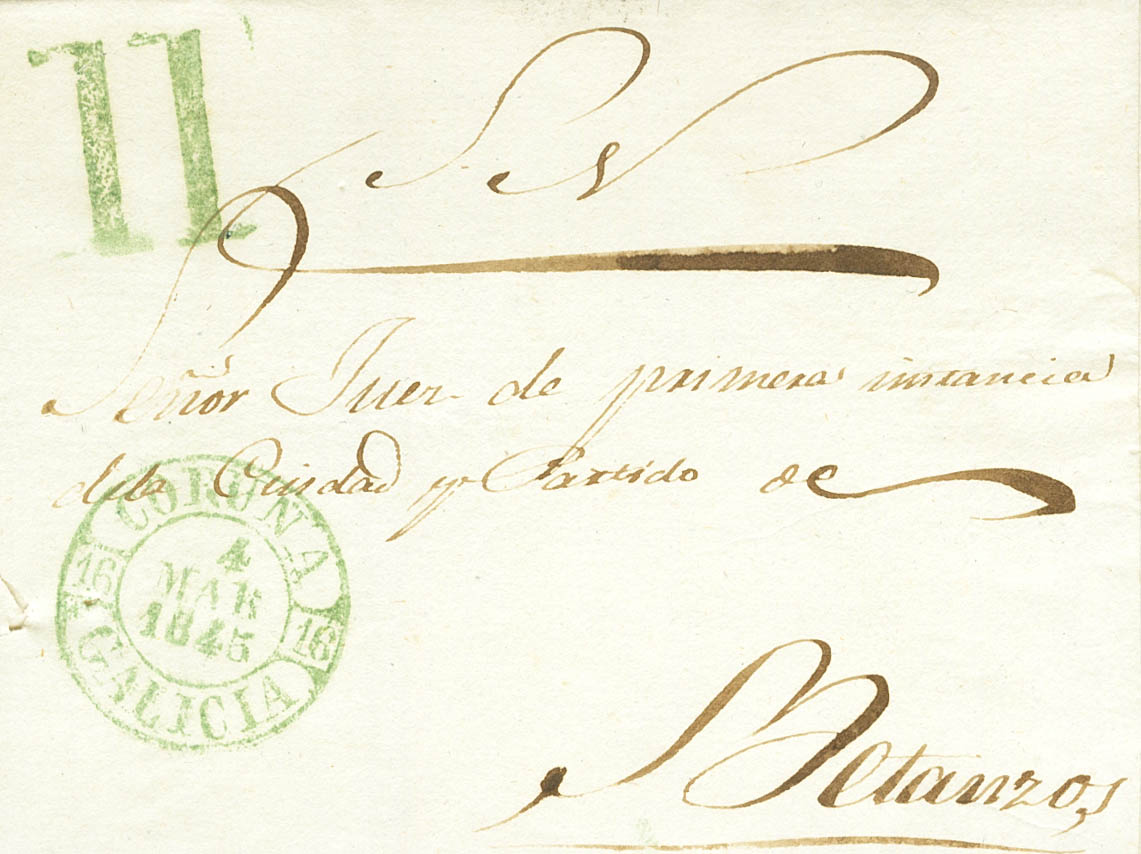 11
S N
Señor Juez de primera instancia
dela Ciudad y Partido de
CORUÑA
4
MAR
1845
16 16
GALICIA
Betanzos